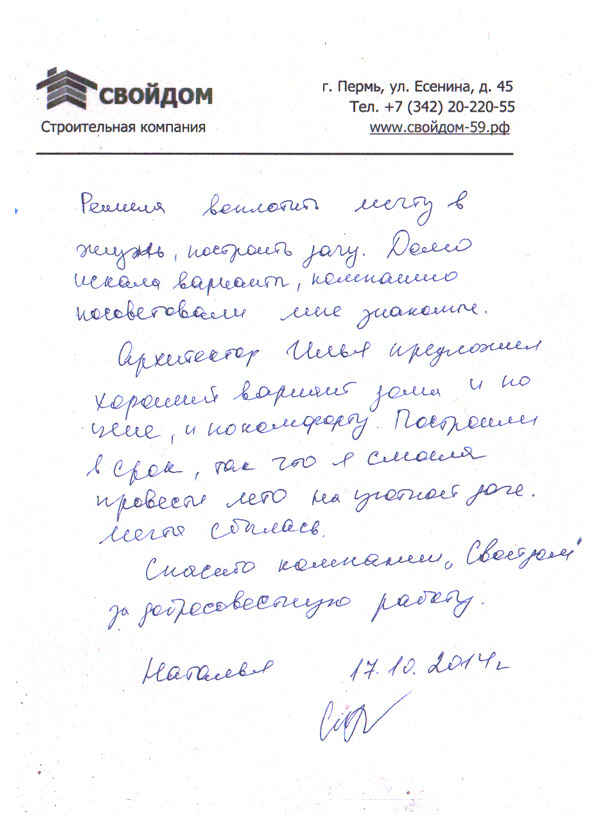 СВОЙДОМ
Строительная компания
г. Пермь, ул. Есенина, д. 45
Тел. +7 (342) 20-220-55
www.свойдом-59.рф
Решила воплотить мечту в
жизнь, построить дачу. Долго
искала варианты, компанию
посоветовали мне знакомые.
Архитектор Илья предложил
хороший вариант дома и по
цене, и по комфорту. Построили
в срок, так что я смогла
провести лето на уютной даче.
Мечта сбылась.
Спасибо компании „Свойдом"
за добросовестную работу.
Наталья 17.10.2014г